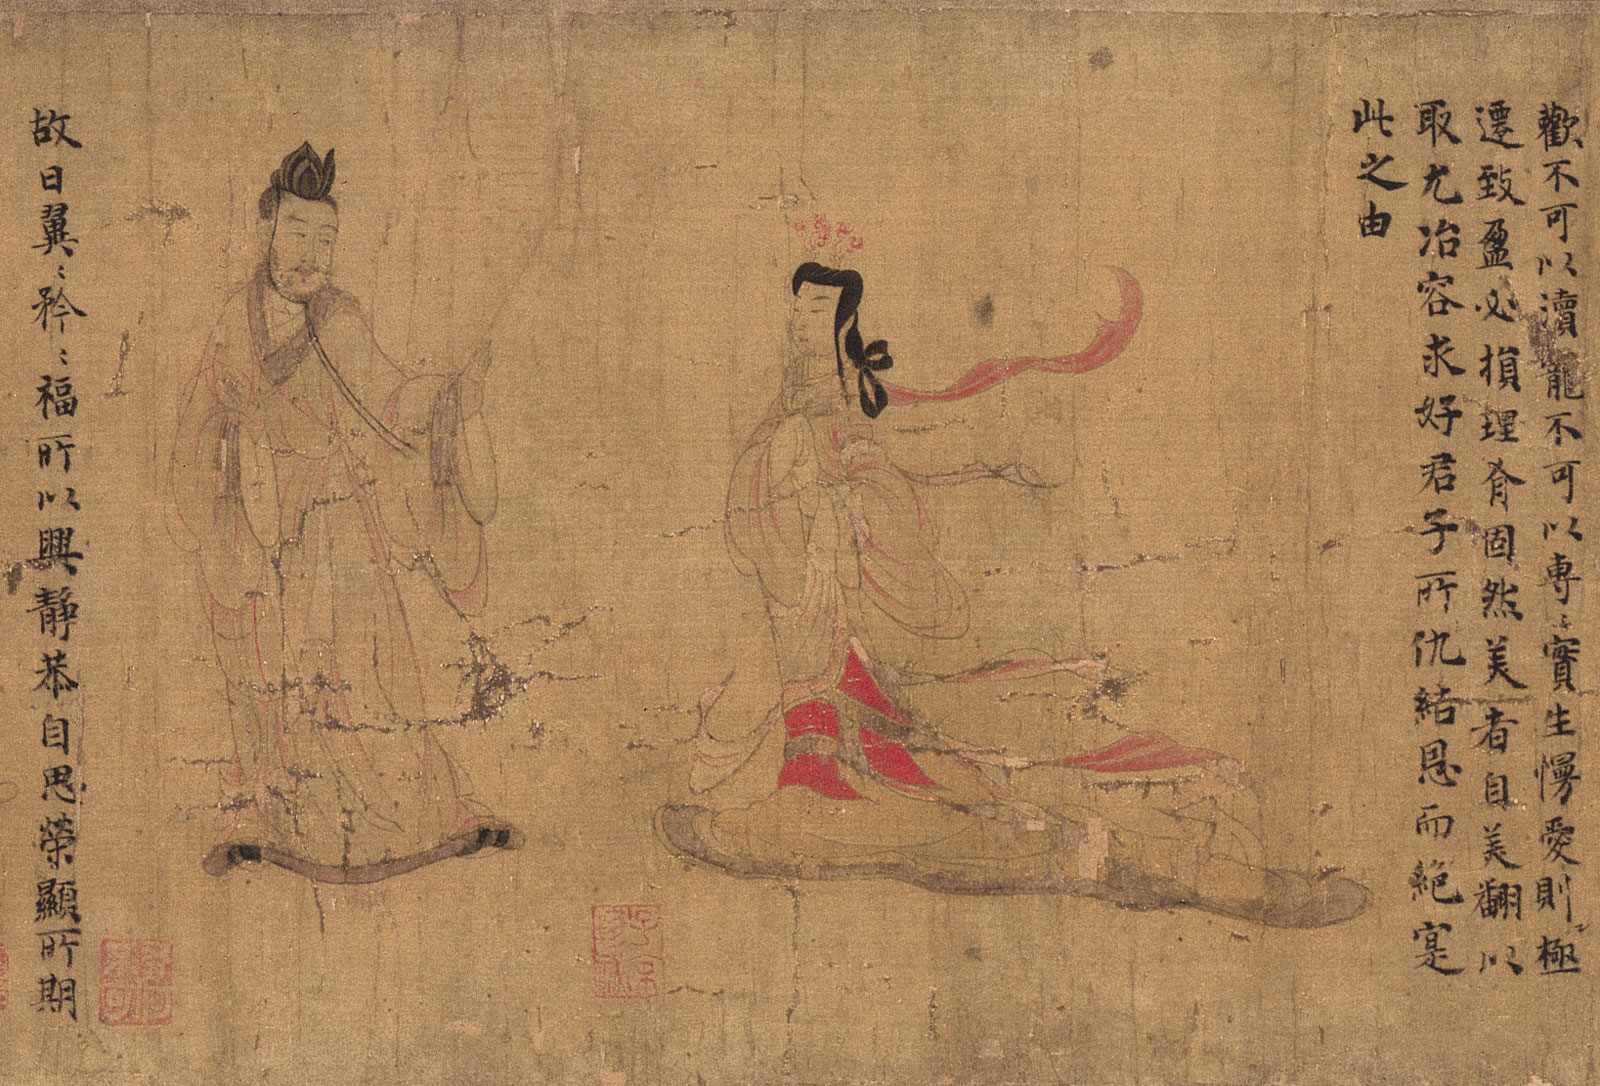 歡不可以瀆寵不可以專〻實生慢愛則極
遷致盈必損理有固然美者自美翻以
取尤冶容求好君子所仇結恩而絕寔
此之由
故曰翼〻矜〻福所以興靜恭自思榮顯所期